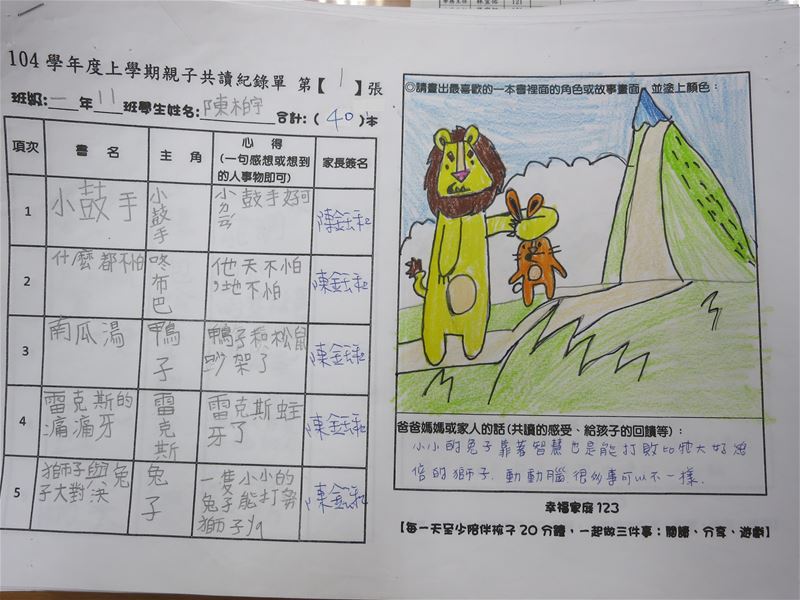 104 學年度上學期親子共讀紀錄單 第【 1 】張
班級:一 年 11 班學生姓名:陳柏宇 合計:( 40 )本
項次 書 名 主 角 心 得 (一句感想或想到的人事物即可) 家長簽名
1 小鼓手 小鼓手 小鼓手好可
2 什麼都不怕 咚布巴 他天不怕,地不怕
3 南瓜湯 鴨子 鴨子和松鼠吵架了
4 雷克斯的痛痛牙 雷克斯 雷克斯蛀牙了
5 獅子與兔子大對決 兔子 一隻小小的兔子能打勞獅子
◎請畫出最喜歡的一本書裡面的角色或故事畫面,並塗上顏色:
爸爸媽媽或家人的話(共讀的感受、給孩子的回饋等):
小小的兔子靠著智慧也是能打敗比牠大好幾
倍的獅子.動動腦 很多事可以不一樣.
幸福家庭 123
【每一天至少陪伴孩子 20 分鐘,一起做三件事:閱讀、分享、遊戲】